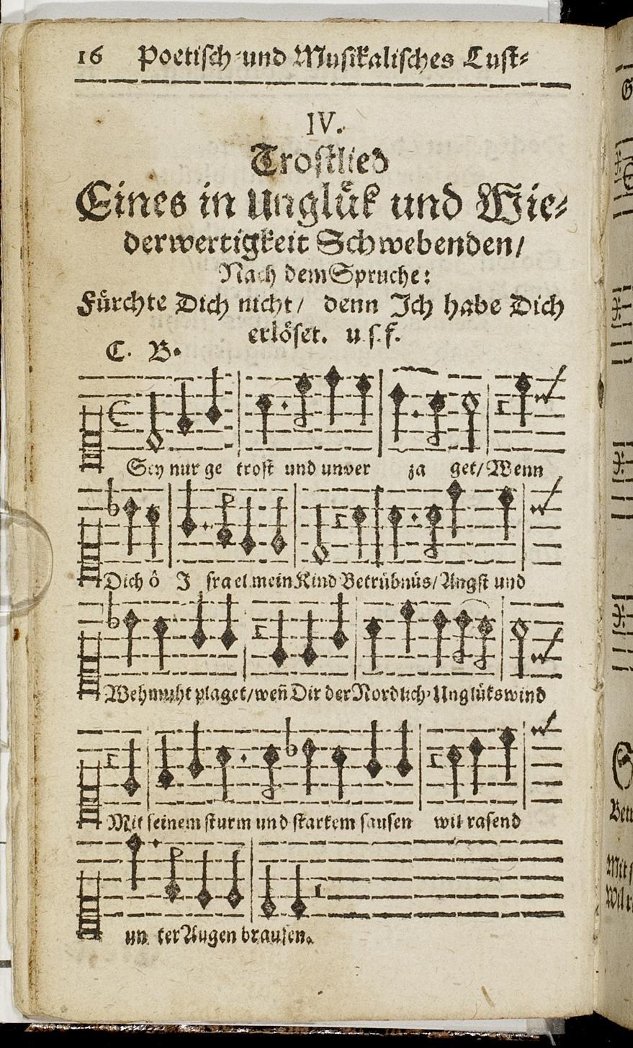 16 Poetisch-und Musikalisches Lust-
IV.
Trostlied
Eines in Unglük und Wie-
derwertigkeit Schwebenden/
Nach dem Spruche:
Fürchte Dich nicht/ denn Ich habe Dich
erlöset. u.s.f.
C. B.
Sey nur ge trost und unver za get/ Wenn
Dich ô I srael mein Kind Betrübnüs/ Angst und
Wehmuht plaget/ weñ Dir der Nordlich-Unglükswind
Mit seinem sturm und starkem sausen wil rasend
un ter Augen brausen.